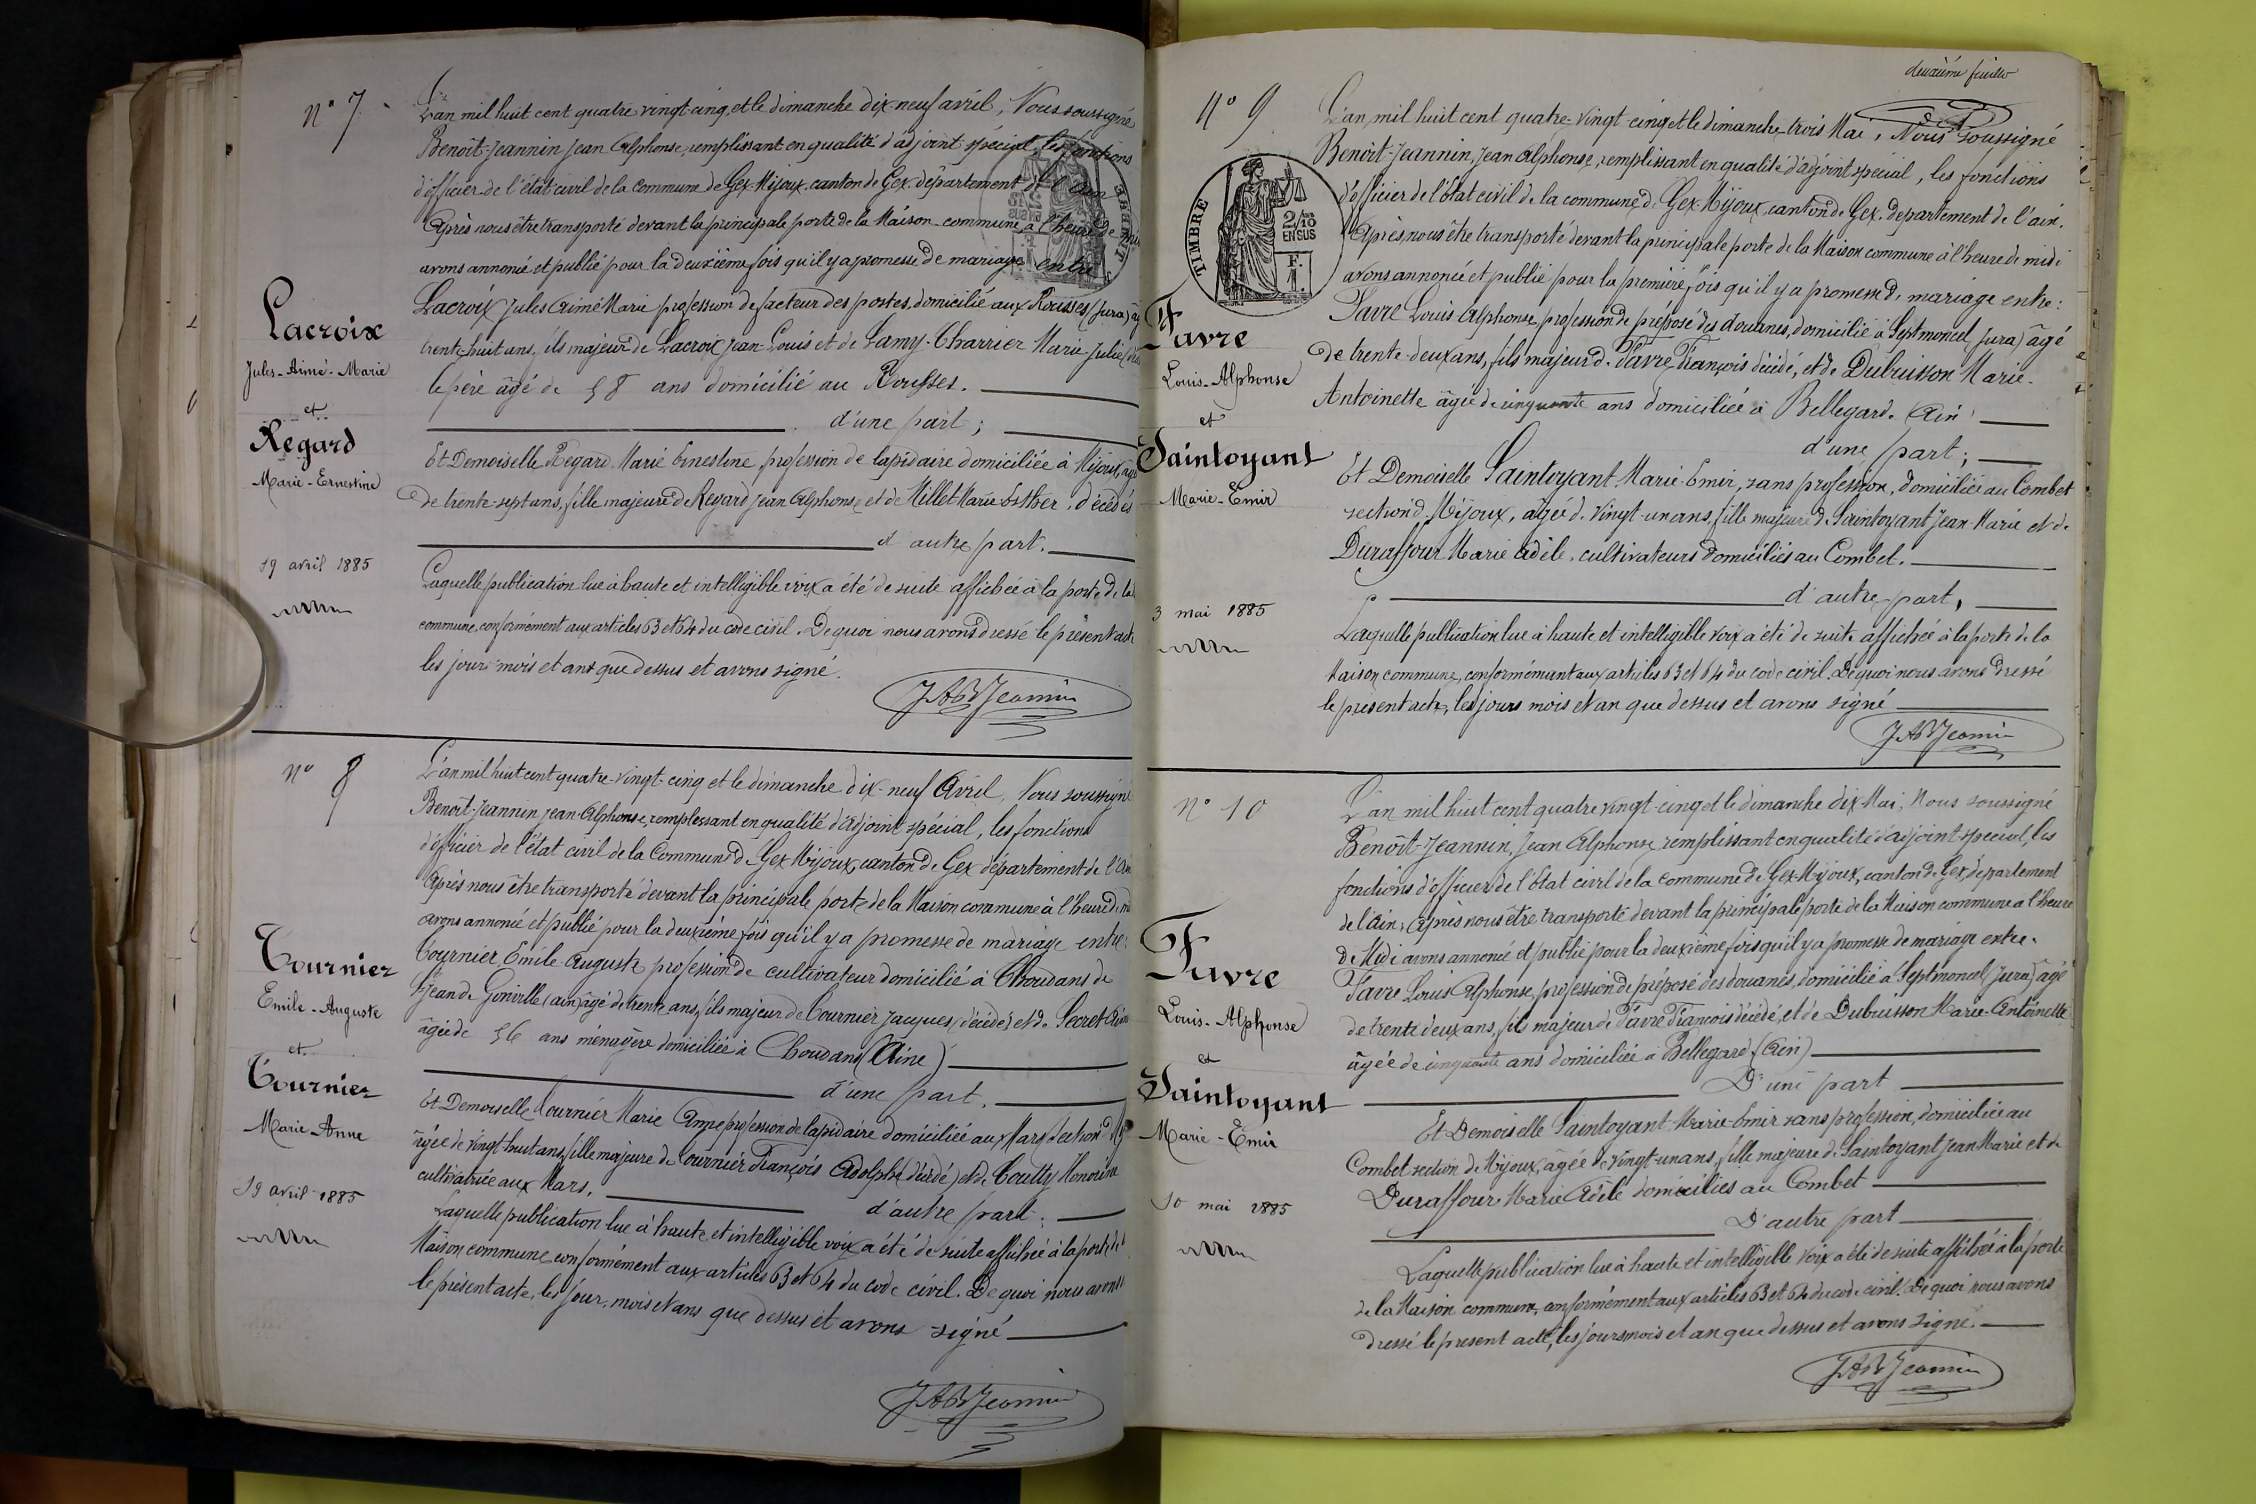 N° 7
L'an mil huit cent quatre-vingt-cinq, et le dimanche dix-neuf avril, Nous soussigné
Benoit-Jeannin Jean Alphonse, remplissant en qualité d'adjoint spécial, les fonctions
d'officier de l'état civil de la commune de Gex-Mijoux, canton de Gex, département de l'Ain
Après nous être transporté devant la principale porte de la Maison commune, à l'heure de
avons annoncé et publié pour la deuxième fois qu'il y a promesse de mariage entre
Lacroix Jules Aimé Marie profession de facteur des postes, domicilié aux Rousses (Jura)
trente-huit ans, fils majeur de Lacroix Jean-Louis et de Lamy-Charrier Marie-Julie
le père âgé de 58 ans domicilié au Rousses.
d'une part;
Et Demoiselle Regard Marie Ernestine, profession de lapidaire domiciliée à Mijoux,
de trente-sept ans, fille majeure de Regard Jean Alphonse et de Millet Marie-Esther, décédés
d'autre part.
Laquelle publication lue à haute et intelligible voix a été de suite affichée à la porte de la
commune, conformément aux articles 63 et 64 du code civil. De quoi nous avons dressé le présent acte
les jour mois et ans que dessus et avons signé.
JABJeannin
Lacroix
Jules-Aimé-Marie
et
Regard
Marie-Ernestine
19 avril 1885
N° 8
L'an mil huit cent quatre-vingt-cinq et le dimanche dix-neuf Avril, Nous soussigné
Benoit-Jeannin Jean-Alphonse, remplessant en qualité d'adjoint spécial, les fonctions
d'officier de l'état civil de la Commune de Gex Mijoux, canton de Gex département de l'Ain
Après nous être transporté devant la principale porte de la Maison commune à l'heure de
avons annoncé et publié pour la deuxième fois qu'il y a promesse de mariage entre:
Tournier Emile-Auguste profession de cultivateur domicilié à Choudans de
St Jean de Gonville (ain) âgé de trente ans, fils majeur de Tournier Jacques (décédé) et de Secret
âgée de 56 ans ménagère domiciliée à Choudans (Aine)
d'une part.
Et Demoiselle Tournier Marie Anne profession de lapidaire domiciliée aux Mars section
âgée de vingt-huit ans, fille majeure de Tournier François Adolphe (décédé) et de Coutty Honorine
cultivatrice aux Mars.
d'autre part.
Laquelle publication lue à haute et intelligible voix a été de suite affichée à la porte de
Maison commune, conformément aux articles 63 et 64 du code civil. De quoi nous avons
le présent acte, les jour, mois et ans que dessus et avons signé
JABJeannin
Tournier
Emile-Auguste
et
Tournier
Marie-Anne
19 avril 1885
deuxième feuillet
N° 9
TIMBRE
2/10
EN SUS
F.
1.
L'an mil huit cent quatre-vingt-cinq et le dimanche trois Mai, Nous soussigné
Benoit-Jeannin, Jean Alphonse, remplissant en qualité d'adjoint spécial, les fonctions
d'officier de l'état civil de la commune de Gex-Mijoux, canton de Gex, département de l'ain.
Après nous être transporté devant la principale porte de la Maison commune à l'heure de midi
avons annoncé et publié pour la première fois qu'il y a promesse de mariage entre:
Favre Louis Alphonse, profession de préposé des douanes, domicilié à Septmoncel (Jura) âgé
de trente-deux ans, fils majeur de Favre François décédé, et de Dubuisson Marie-
Antoinette âgée de cinquante ans domiciliée à Bellegarde (Ain)
d'une part;
Et Demoiselle Saintoyant Marie-Emir, sans profession, domiciliée au Combet
section de Mijoux, âgée de vingt-un ans, fille majeure de Saintoyant Jean-Marie et de
Duraffour Marie Adèle, cultivateurs domiciliés au Combet.
d'autre part,
Laquelle publication lue à haute et intelligible voix a été de suite affichée à la porte de la
Maison commune, conformément aux articles 63 et 64 du code civil. De quoi nous avons dressé
le présent acte, les jours mois et an que dessus et avons signé
JABJeannin
Favre
Louis-Alphonse
et
Saintoyant
Marie-Emir
3 mai 1885
N° 10
L'an mil huit cent quatre vingt-cinq et le dimanche dix Mai, Nous soussigné
Benoit-Jeannin, Jean Alphonse, remplissant en qualité d'adjoint spécial, les
fonctions d'officier de l'état civil de la commune de Gex-Mijoux, canton de Gex, département
de l'Ain, Après nous être transporté devant la principale porte de la Maison commune a l'heure
de Midi avons annoncé et publié pour la deuxième fois qu'il y a promesse de mariage entre.
Favre Louis Alphonse, profession de préposé des douanes, domicilié à Septmoncel (Jura) âgé
de trente deux ans, fils majeur de Favre François décédé, et de Dubuisson Marie-Antoinette
âgée de cinquante ans domiciliée à Bellegarde (Ain)
D'une part
Et Demoiselle Saintoyant-Marie-Emir sans profession, domiciliée au
Combet section de Mijoux, âgée de vingt-un ans, fille majeure de Saintoyant Jean Marie et de
Duraffour Marie Adèle domiciliés au Combet
D'autre part
Laquelle publication lue à haute et intelligible voix a été de suite affichée à la porte
de la Maison commune, conformément aux articles 63 et 64 du code civil. De quoi nous avons
dressé le présent acte, les jours mois et an que dessus et avons signé.
JABJeannin
Favre
Louis-Alphonse
et
Saintoyant
Marie-Emir
10 mai 1885